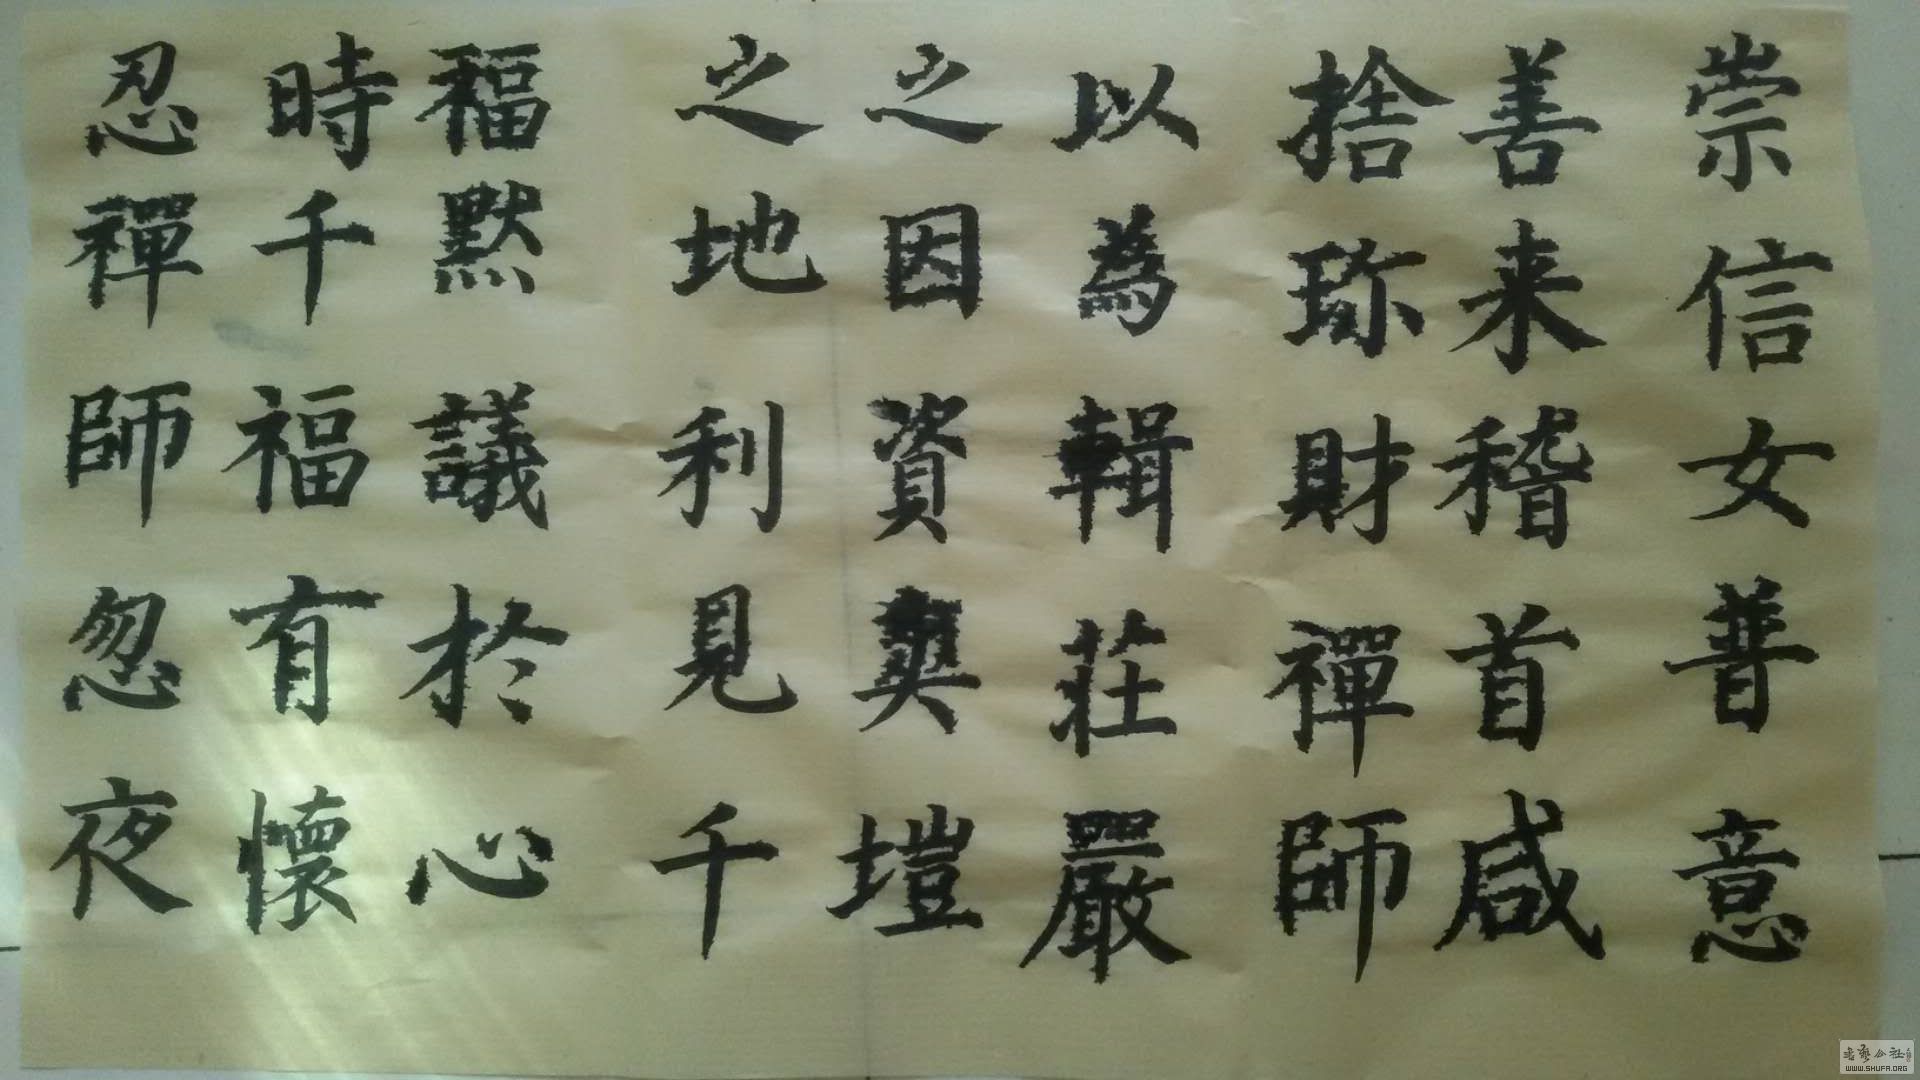 崇信女普意
善来稽首咸
捨珎財禪師
以為輯莊嚴
之因資爽塏
之地利見千
福默議於心
時千福有懷
忍禪師忽夜
WWW.SHUFA.ORG